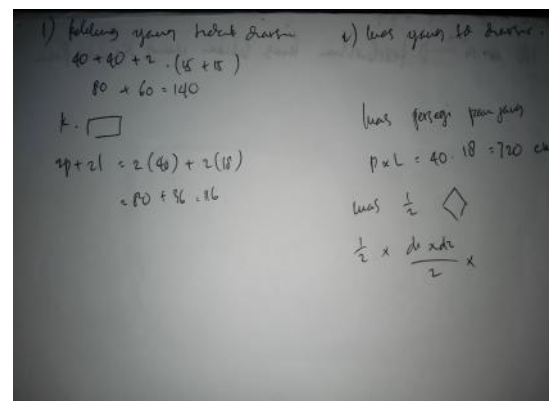 1) keliling yang tidak diarsir
40 + 40 + 2 . (15 + 15)
80 + 60 = 140
k.
2p + 2l = 2(40) + 2(18)
= 80 + 36 = 116
2) luas yang tdk diarsir.
luas persegi panjang
p x L = 40 . 18 = 720 cm
luas 1/2
1/2 x d1 x d2 / 2 x